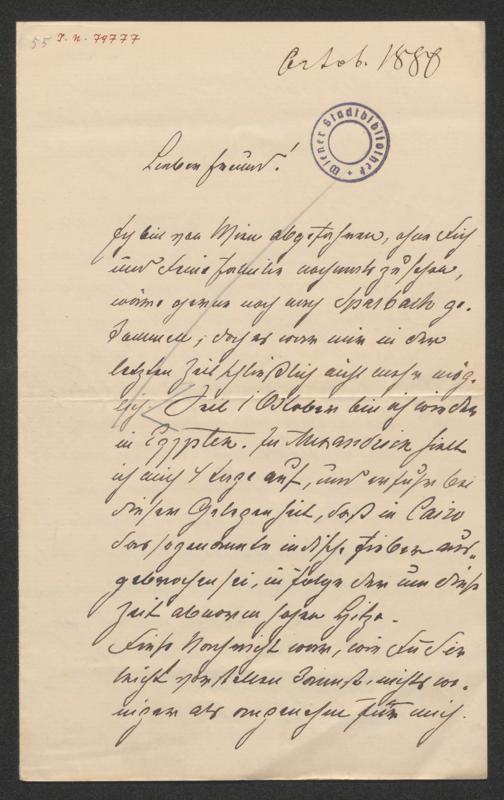 55 I. N. 79777
Octob. 1880
Wiener Stadtbibliothek
Lieber Freund!
Ich bin von Wien abgefahren, ohne Dich
und Deine Familie nochmals zu sehen,
wäre gerne noch nach Sparbach ge-
kommen; doch es war mir in der
letzten Zeit schließlich nicht mehr mög-
lich. Seit 1 October bin ich wieder
in Egypten. In Alexandrien hielt
ich mich 4 Tage auf, und erfuhr bei
dieser Gelegenheit, daß in Cairo
das sogenannte indische Fieber aus-
gebrochen sei, in folge der um diese
Zeit abnorm hohen Hitze.
Diese Nachricht war, wie Du Dir
leicht vorstellen kannst, nichts we-
niger als angenehm für mich.